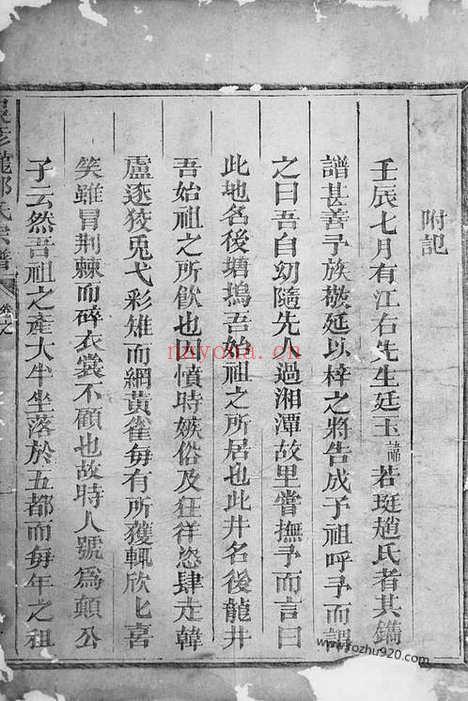 附記
壬辰七月有江右先生廷玉諱若珽趙氏者其鐫
譜甚善予族敬延以梓之將告成予祖呼予而謂
之曰吾自幼隨先人過湘潭故里嘗撫予而言曰
此地名後塘塢吾始祖之所居也此井名後龍井
吾始祖之所飲也憤時嫉俗及往徉恣肆走韓
盧逐狡兎弋彩雉而網黃雀每有所獲輒欣匕喜
笑雖冒荆棘而碎衣裳不顧也故時人號爲顛公
子云然吾祖之產大半坐落於五都而每年之租
氏宗譜
卷之
nayona.cn
www.fozhu920.com